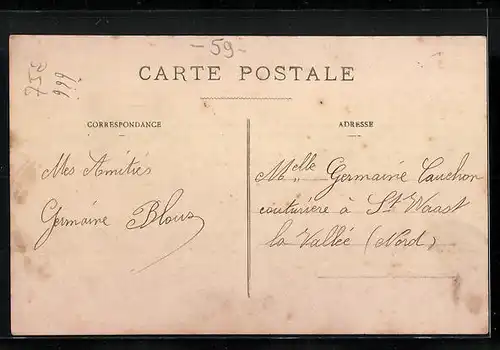 - 59 -
CARTE POSTALE
CORRESPONDANCE
Mes Amitiés
Germaine Blous
ADRESSE
Melle Germaine Cauchon
couturiere à St Waast
la Vallée (Nord)